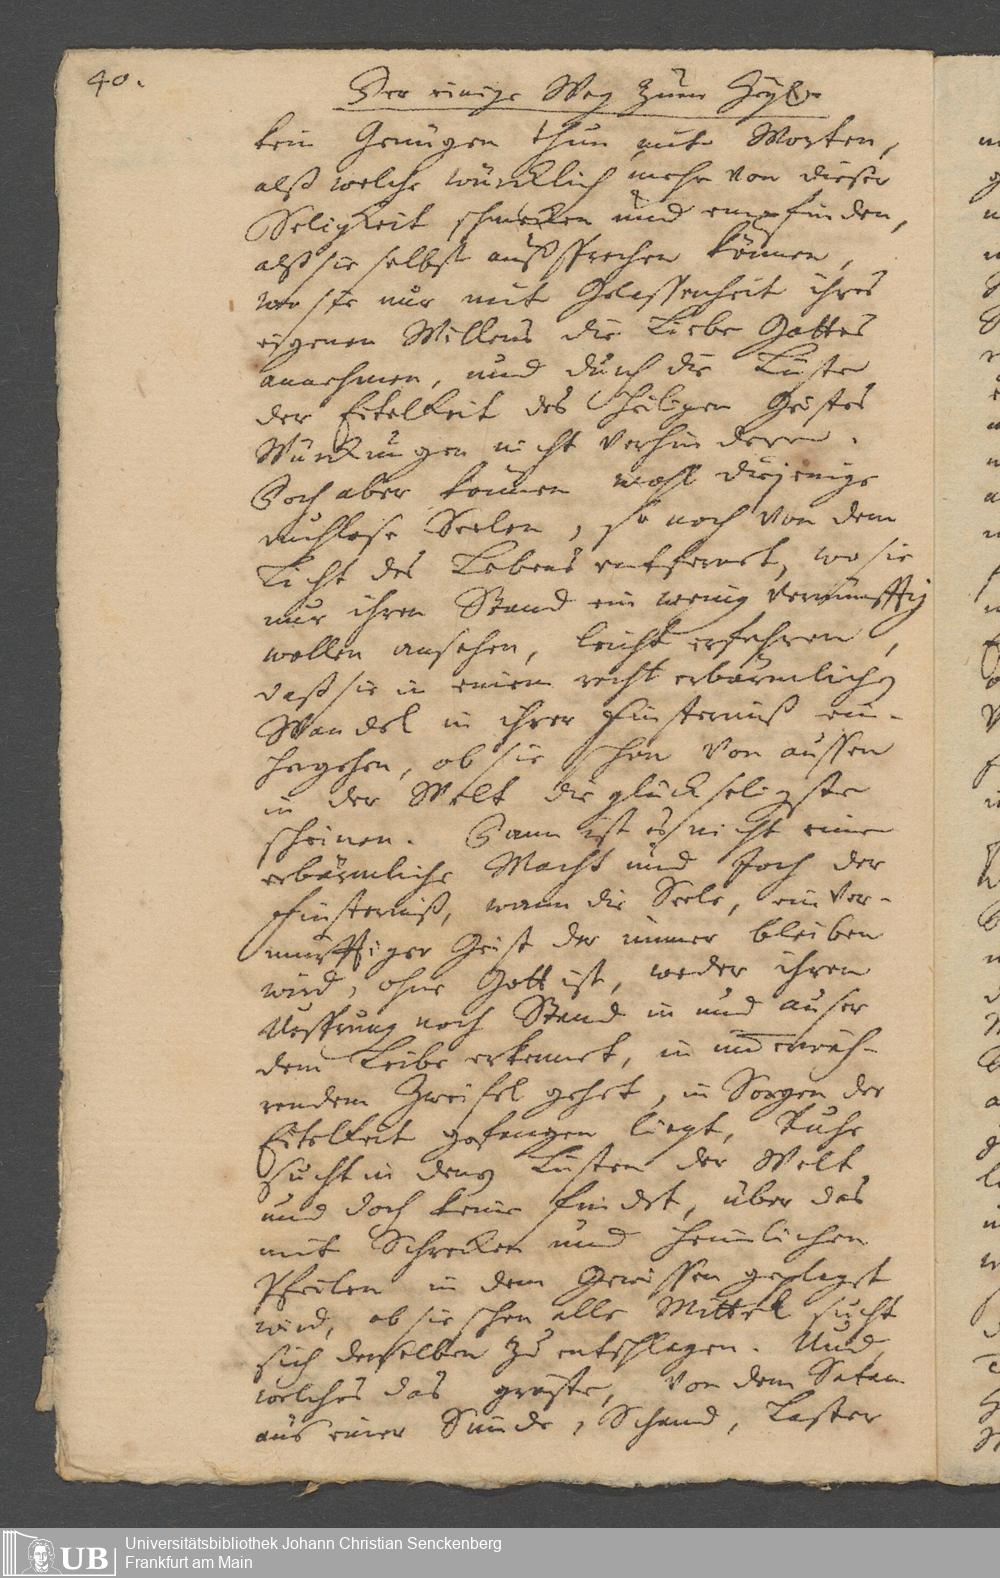 40.
Der einige Weg zum Heyl.
kein Genügen thun mit Worten,
alß welche würcklich mehr von dieser
Seligkeit schmecken und empfinden,
alß sie selbst außsprechen können,
wo sie nur mit Gelassenheit ihres
eigenen Willens die Liebe Gottes
annehmen, und durch die Lüste
der Eitelkeit des Heiligen Geistes
Würckungen nicht verhinderen.
Doch aber können wohl diejenige
ruchlose Seelen, so noch von dem
Licht des Lebens entfernet, wo sie
nur ihren Stand ein wenig vernünfftig
wollen ansehen, leicht erfahren,
daß sie in einem recht erbärmlichen
Wandel in ihrer Finsterniß ein-
hergehen, ob sie schon von aussen
in der Welt die glückseligste
scheinen. Dann ist es nicht eine
erbärmliche Macht und Joch der
Finsterniß, wann die Seele, ein ver-
nünfftiger Geist der immer bleiben
wird, ohne Gott ist, weder ihren
Ursprung noch Stand in und auser
dem Leibe erkennet, in immerwäh-
rendem Zweifel gehet, in Sorgen der
Eitelkeit gefangen liegt, Ruhe
sucht in denen Lüsten der Welt
und doch keine findet, über das
mit Schrecken und heimlichen
Pfeilen in dem Gewissen geplaget
wird, ob sie schon alle Mittel sucht
sich derselben zu entschlagen. Und
welches das gröste, von dem Satan
aus einer Sünde, Schand, Laster
UB
Universitätsbibliothek Johann Christian Senckenberg
Frankfurt am Main